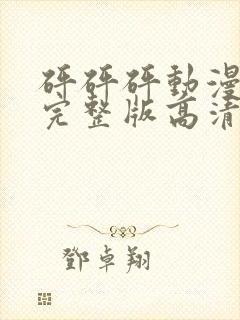 砰砰砰動漫
完整版高清
鄧卓翔